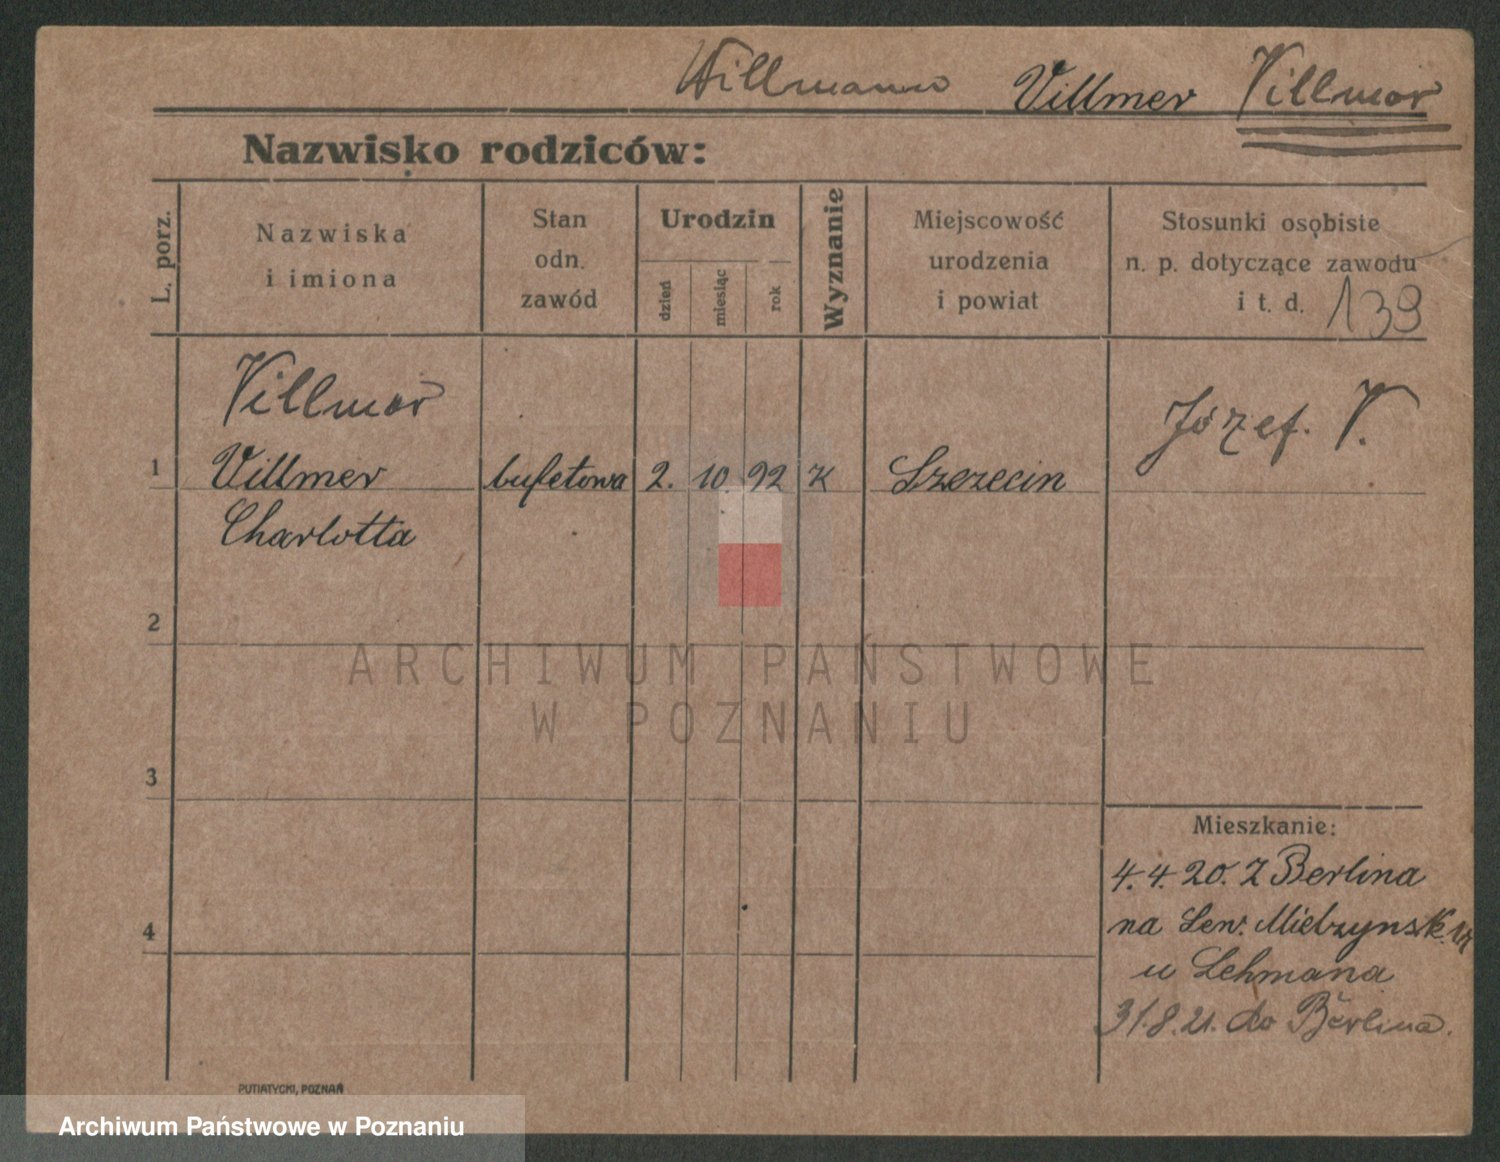 Willmann Villmer Villmar
Nazwisko rodziców:
L. porz.
Nazwiska
i imiona
Stan
odn.
zawód
Urodzin
dzień
miesiąc
rok
Wyznanie
Miejscowość
urodzenia
i powiat
Stosunki osobiste
n. p. dotyczące zawodu
i t. d. 139
Villmar
1 Villmer bufetowa 2. 10. 92 K Szczecin Józef. V.
Charlotta
2
3
4
Mieszkanie:
4.4.20. Z Berlina
na Sew. Mielzynsk.
u Lehmana
31.8.21. do Berlina.
PUTIATYCKI, POZNAŃ
ARCHIWUM PAŃSTWOWE
W POZNANIU
Archiwum Państwowe w Poznaniu